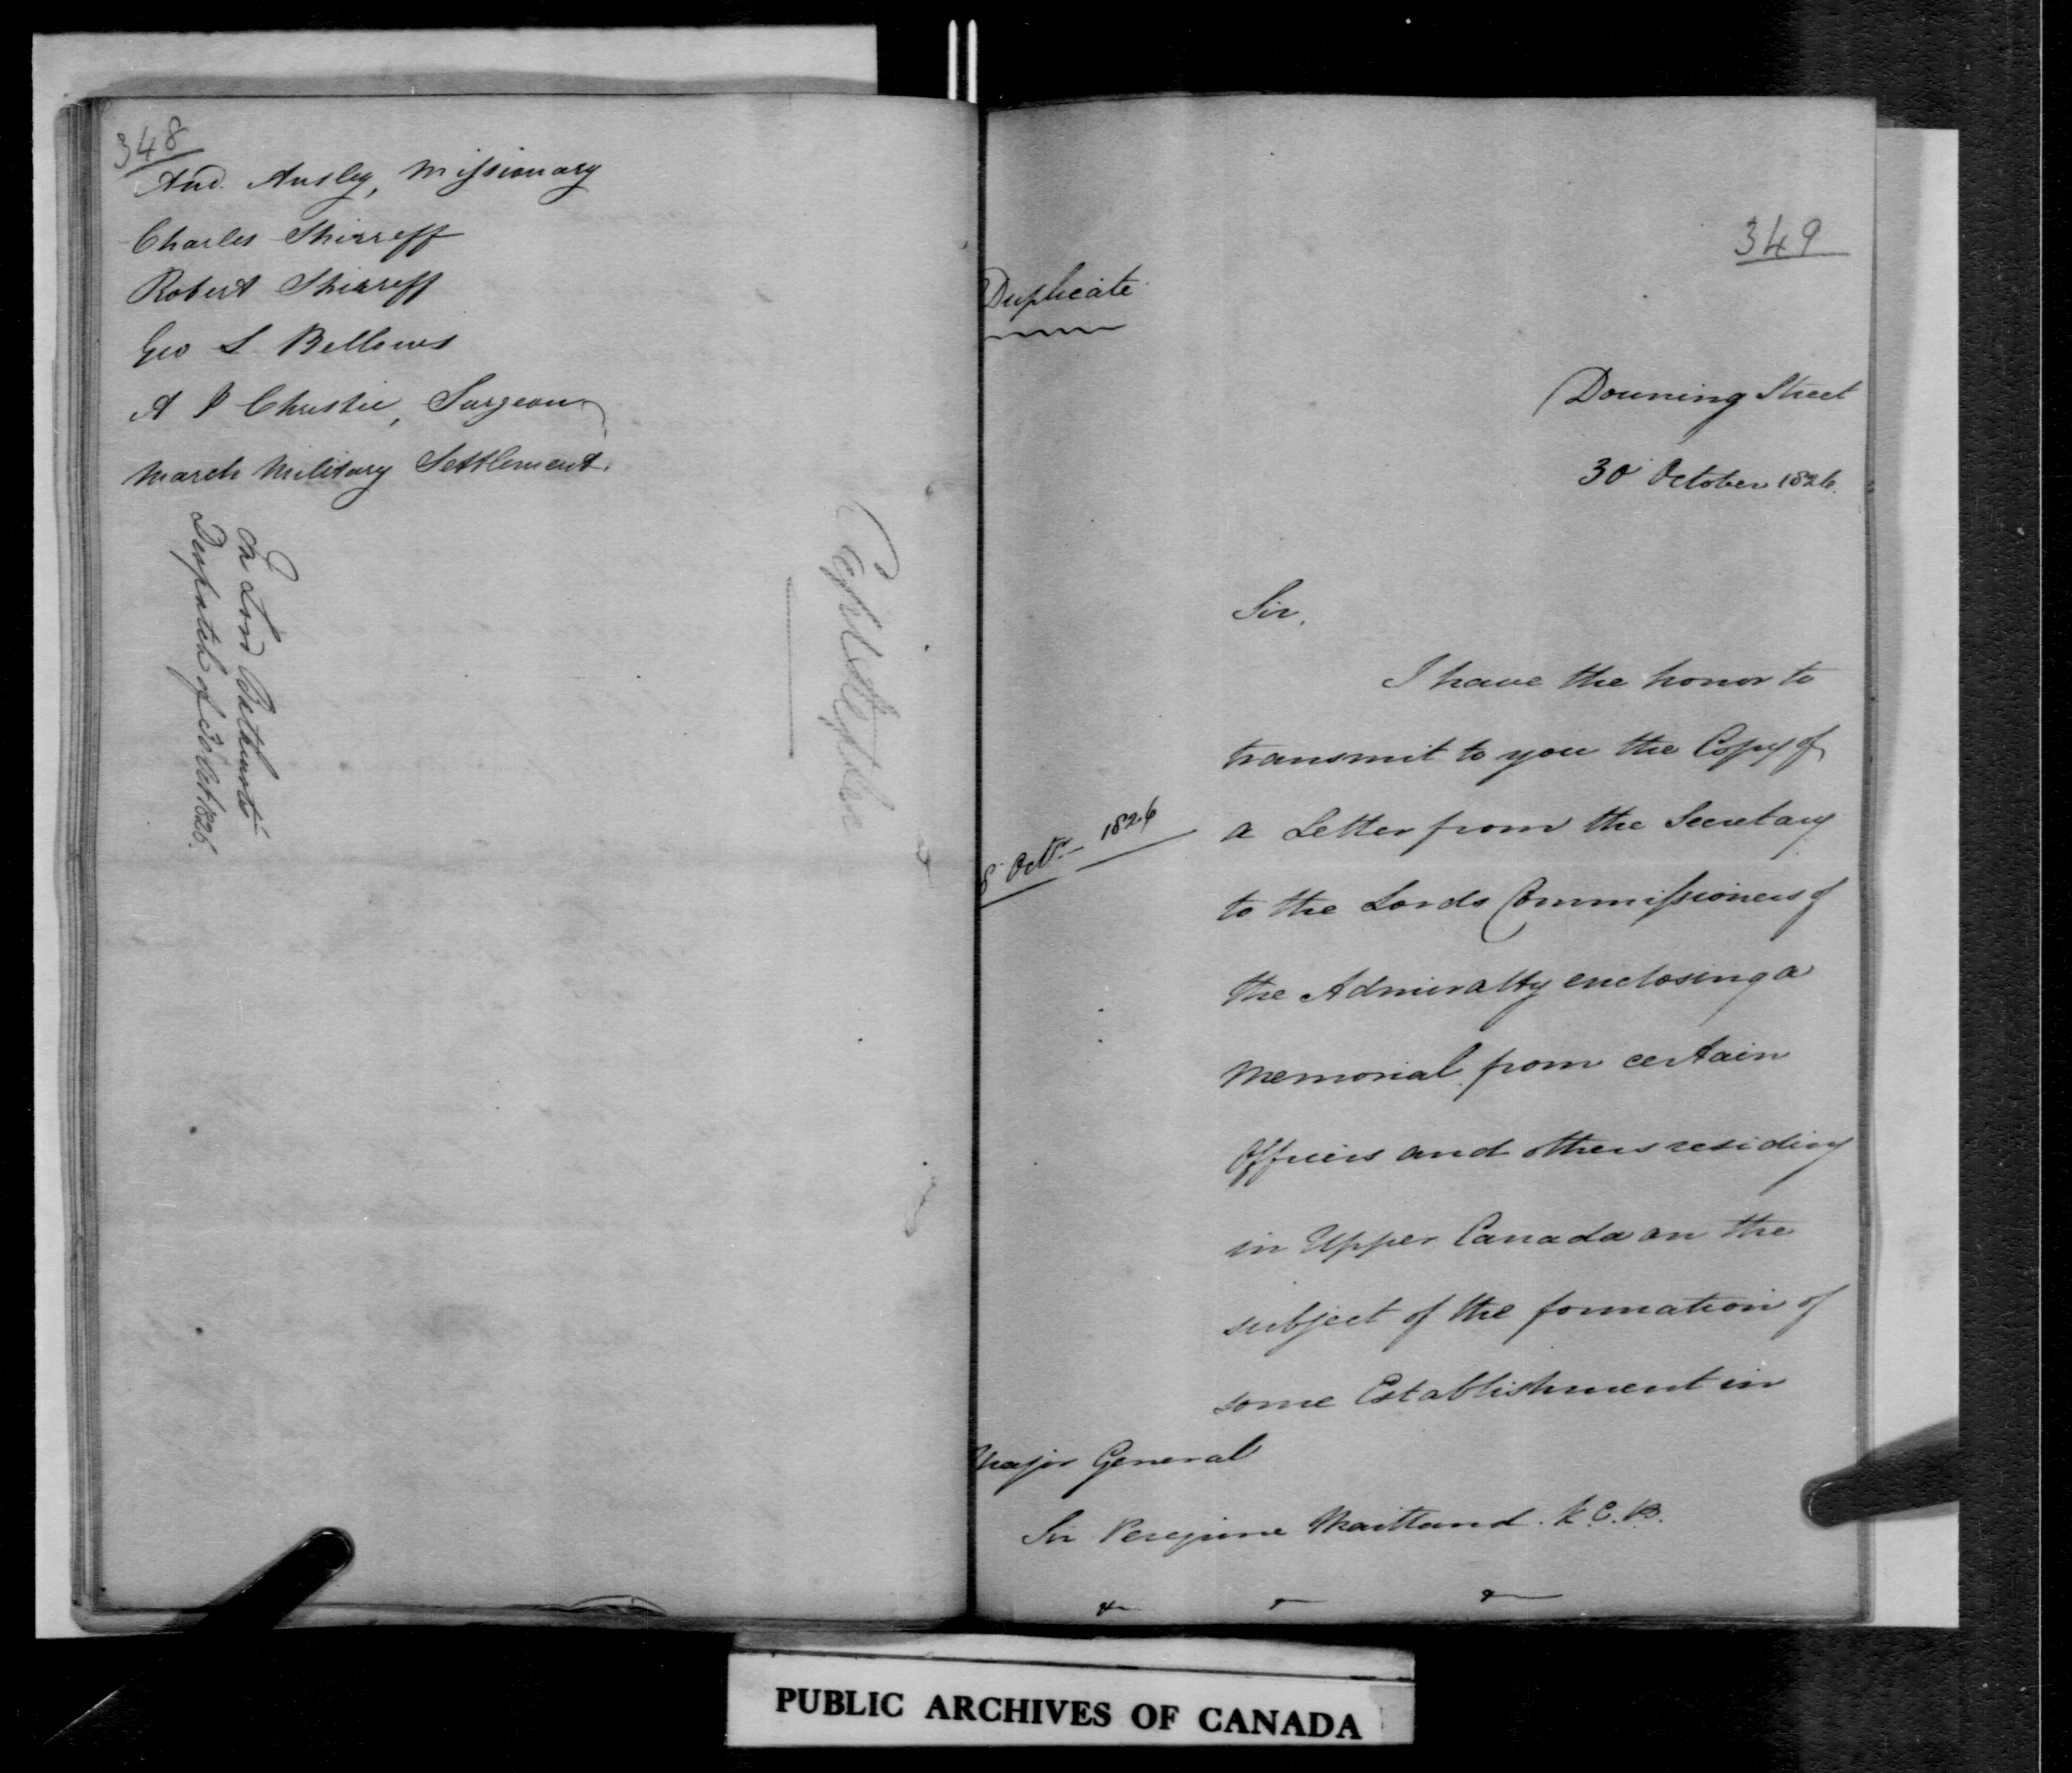 348
And. Ansley, Missionary
Charles Shirreff
Robert Shirreff
Geo L Bellows
A J Christie, Surgeon
March Military Settlement.
In Lord Bathurst's
Despatch of 30 Oct 1826.
349
Duplicate
Downing Street
30 October 1826.
Sir,
I have the honor to
transmit to you the Copy of
8 Octr. 1826
a Letter from the Secretary
to the Lords Commissioners of
the Admiralty enclosing a
Memorial from certain
Officers and others residing
in Upper Canada on the
subject of the formation of
some Establishment in
Major General
Sir Peregrine Maitland. K.C.B.
PUBLIC ARCHIVES OF CANADA